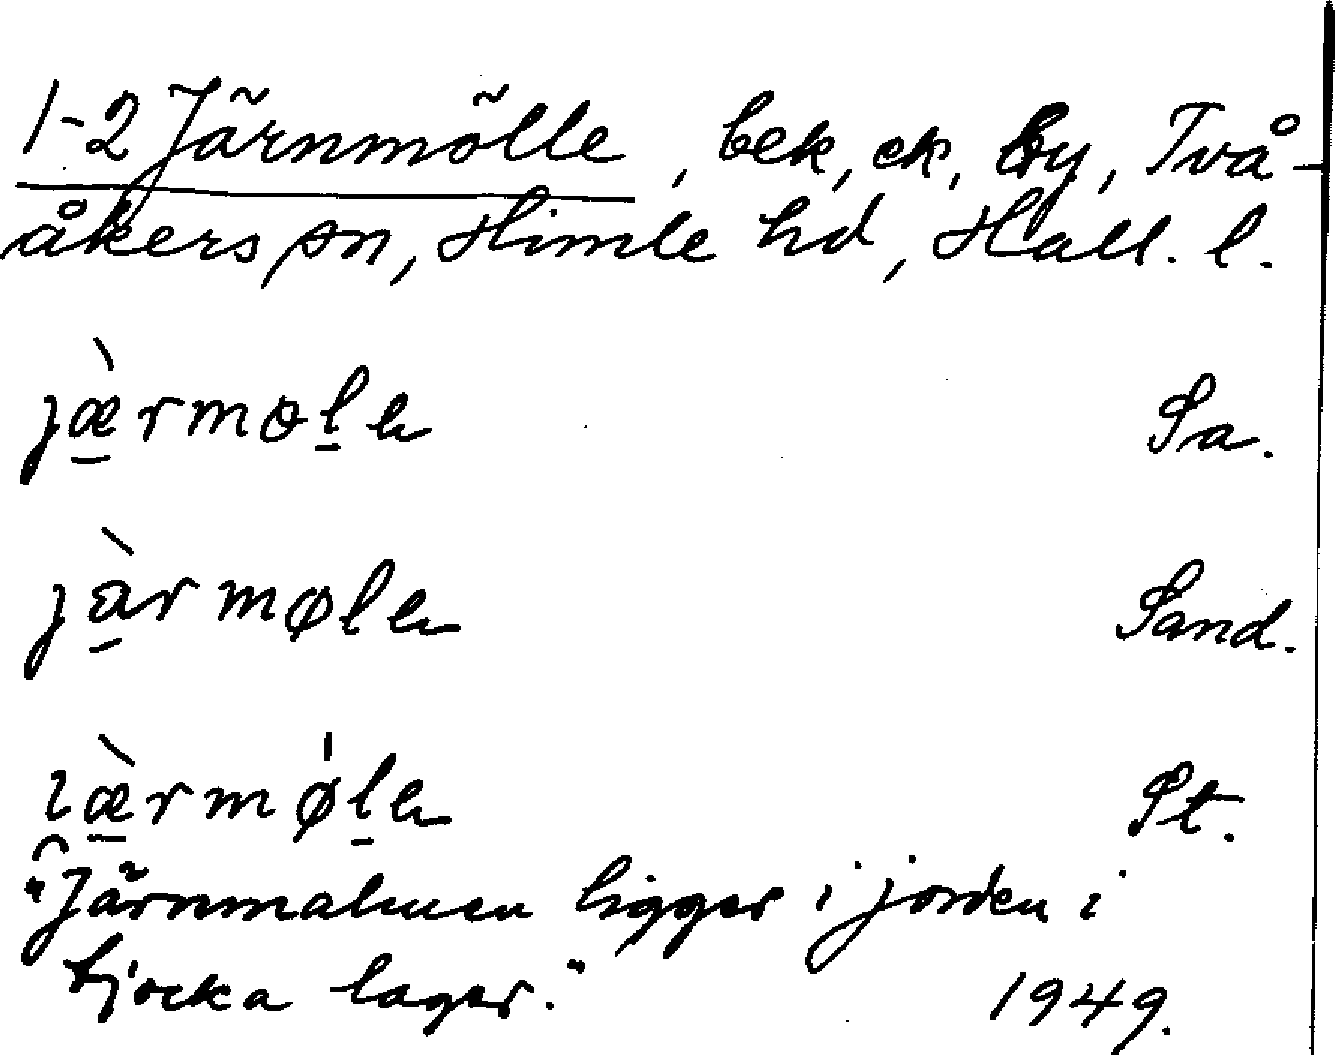 1-2 Järnmölle, bek, ek, by, Två-
åkers sn, Himle hd, Hall. l.
jæ̀rmɵlə Sa.
jàrmølə Sand.
i̯æ̀rmø̍lə St.
"Järnmalmen ligger i jorden i
tjocka lager." 1949.